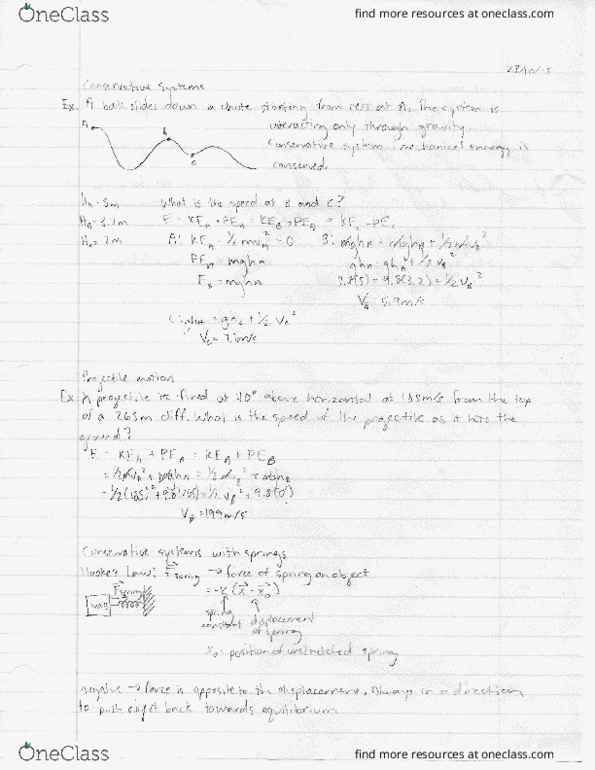 OneClass
find more resources at oneclass.com
Conservative Systems
Ex. A ball slides down a chute starting from rest at A. The system is
A
interacting only through gravity.
B
conservative system: mechanical energy is
C
conserved.
What is the speed at B and C?
hA = 5m
E = KEA + PEA = KEB + PEB = KEC + PEC
A: KEA = 1/2 mvA² = 0
B: mghA = mghB + 1/2 mvB²
PEA = mghA
ghA = ghB + 1/2 vB²
EA = mghA
9.8(5) = 9.8(3.2) + 1/2 vB²
VB = 5.9m/s
Projectile motion
Ex. A projectile is fired at 40° above horizontal at from the top
of a 265m cliff. What is the speed of the projectile as it hits the
ground?
E = KEA + PEA = KEB + PEB
VB = 199m/s
Conservative systems with springs
Hooke's Law: Fspring → force of spring on object
= -k(x - x0)
Fspring
spring constant
displacement of spring
x0: position of unstretched spring
negative → force is opposite to the displacement. Always in a direction
to push object back towards equilibrium
OneClass
find more resources at oneclass.com